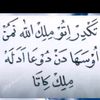 تكدير اتو ملك الله نمن
أوسها دن دوعا ادله
ملك كيتا